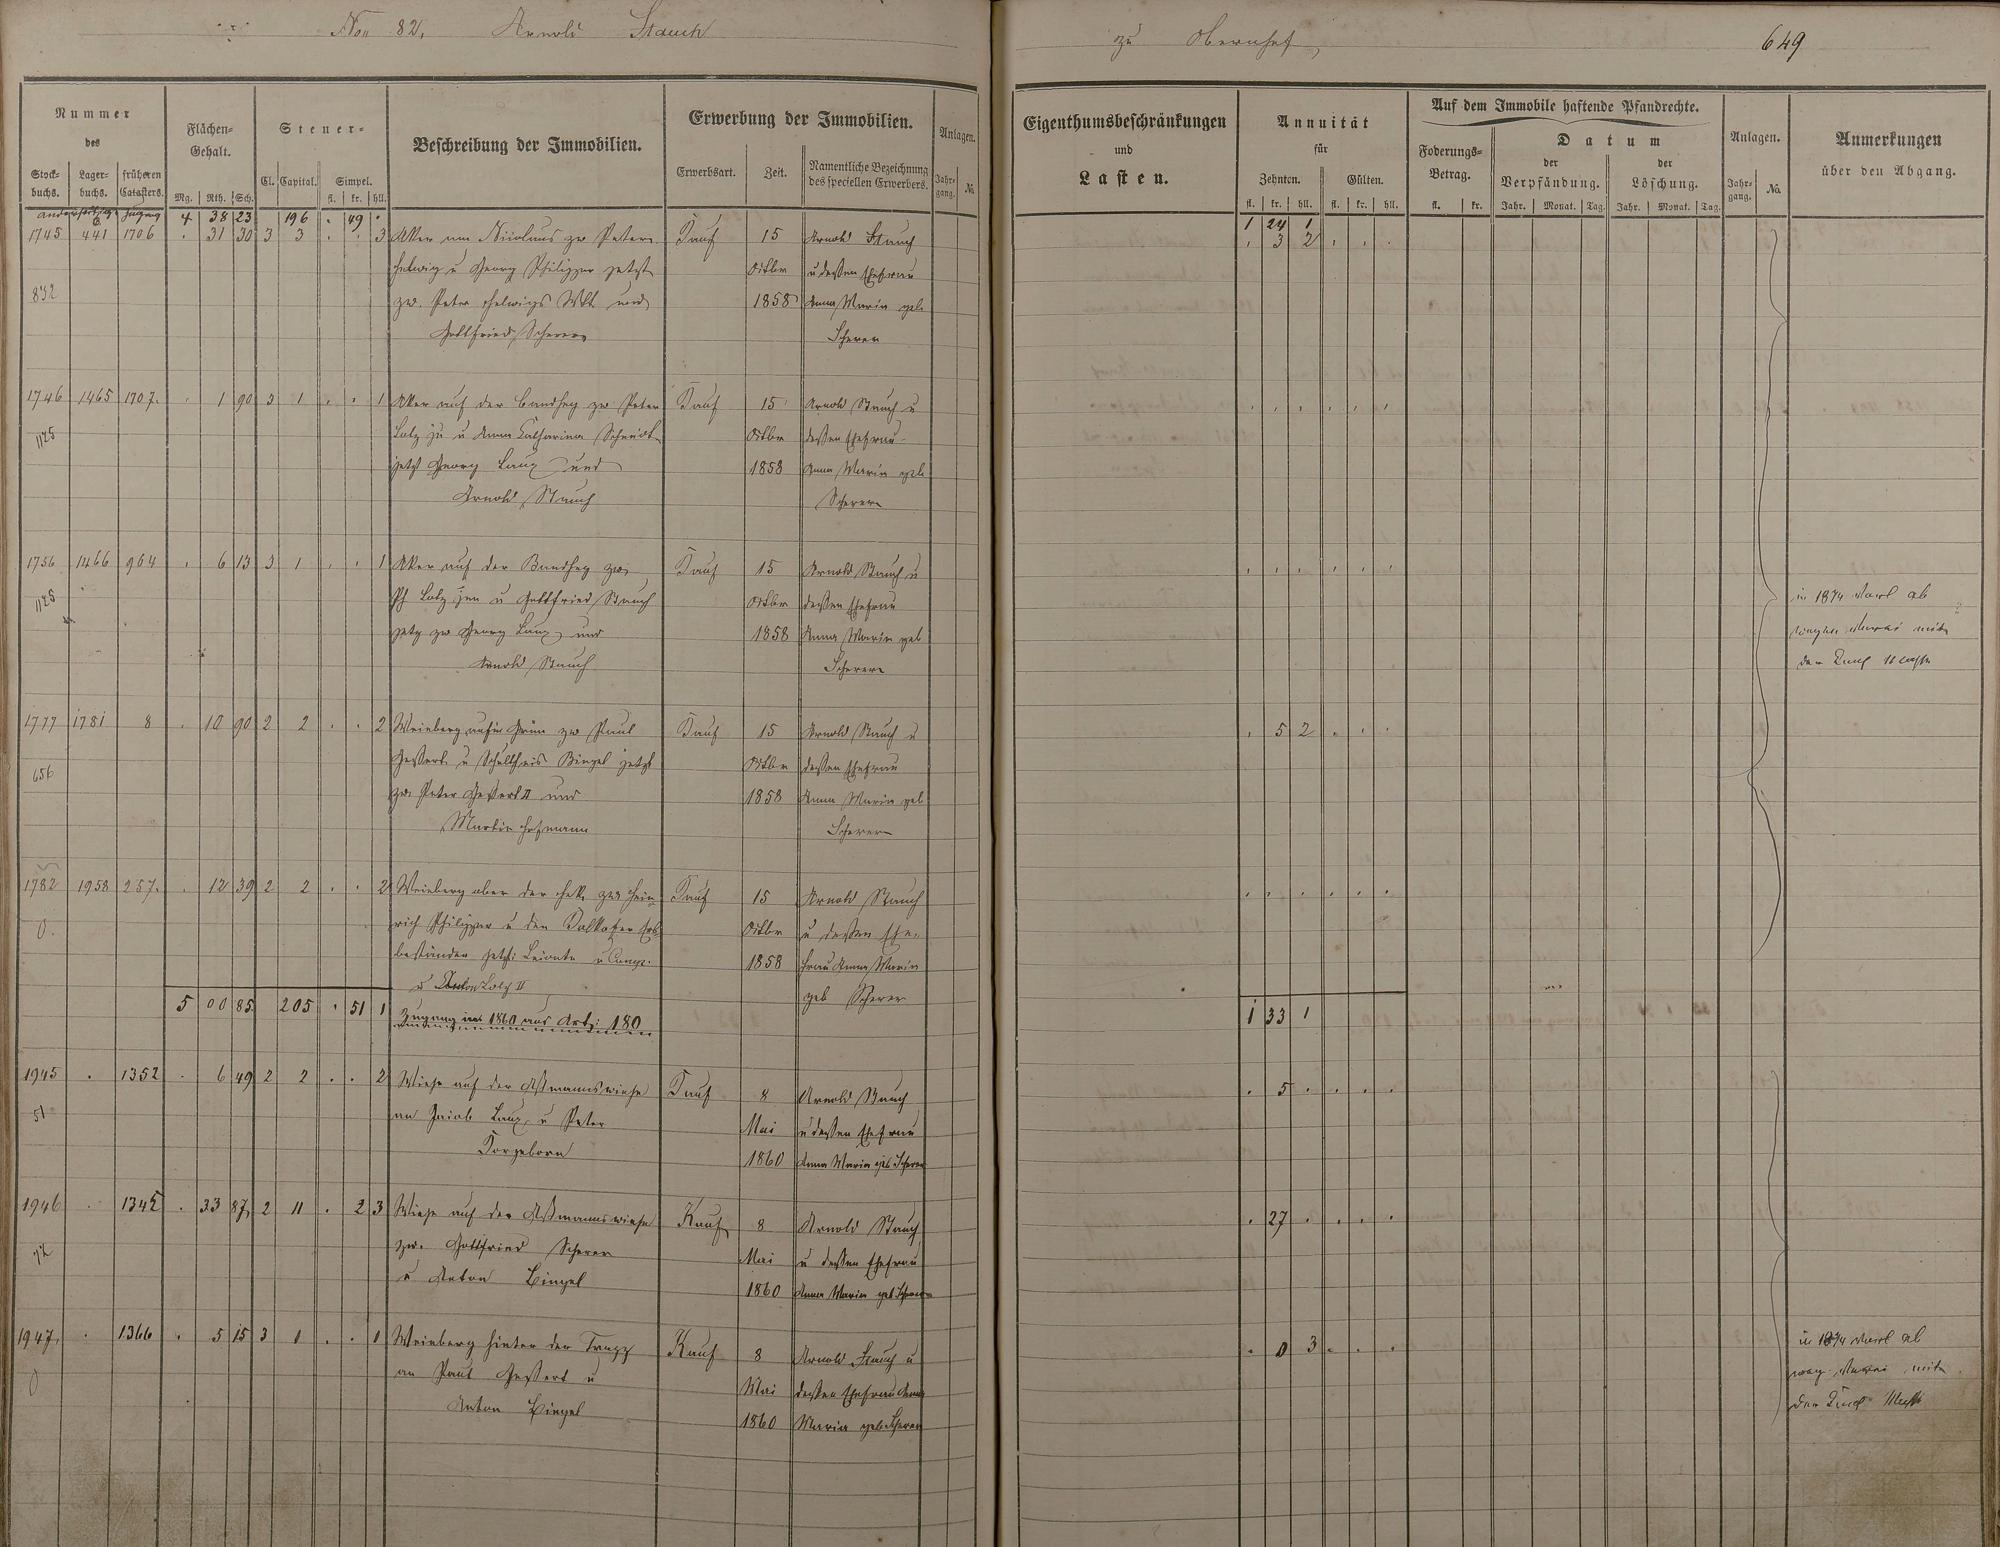 Non 82. Arnold Stauch
zu Obernhof, 649
Nummer des
Stockbuchs. Lagerbuchs. früheren Catasters.
Flächen-Gehalt.
Mg. Rth. Sch.
Steuer-
Cl. Capital. Simpel.
fl. kr. hll.
Beschreibung der Immobilien.
Erwerbung der Immobilien.
Erwerbsart. Zeit. Namentliche Bezeichnung des speciellen Erwerbers.
Anlagen.
Jahrgang. No.
Eigenthumsbeschränkungen
und
Lasten.
Annuität
für
Zehnten. Gülten.
fl. kr. hll. fl. kr. hll.
Auf dem Immobile haftende Pfandrechte.
Foderungs-Betrag.
fl. kr.
Datum
der Verpfändung. der Löschung.
Jahr. Monat. Tag. Jahr. Monat. Tag.
Anlagen.
Jahrgang. No.
Anmerkungen
über den Abgang.
4 38 23 196 . 49 . 1 24 1
1745 441 1706 . 31 30 3 3 . . 3 Aker am Nicolaus zw Peter Kauf 15 Arnold Stauch . 3 2 . . .
Helwig u Georg Philippar jetzt Octbr u dessen Ehefrau
832 zw. Peter Helwigs Wtb und 1858 Anna Maria geb
Gottfried Scherer Scherer
1746 1465 1707. . 1 90 3 1 . . 1 Aker auf der Bandhey zw Peter Kauf 15 Arnold Stauch u
1125 Lotz jn u Anna Catharina Schmidt Octbr dessen Ehefrau
jetzt Georg Laux und 1858 Anna Maria geb
Arnold Stauch Scherer
1756 1466 964 . 6 13 3 1 . . 1 Aker auf der Bandhey zw Kauf 15 Arnold Stauch u
1125 Ph Lotz jen u Gottfried Stauch Octbr dessen Ehefrau in 1874 ab
jetz zw Georg Laux und 1858 Anna Maria geb mit
Arnold Stauch Scherer der
1777 1781 8 . 10 90 2 2 . . 2 Weinberg aufm Grün zw Paul Kauf 15 Arnold Stauch u . 5 2 . . .
Gessert u Schultheis Bingel jetzt Octbr dessen Ehefrau
656 zw Peter Gessert II und 1858 Anna Maria geb
Martin Hofmann Scherer
1782 1958 257. . 12 39 2 2 . . 2 Weinberg ober der Hek zw Hein- Kauf 15 Arnold Stauch
0. rich Philippar u den Kalkofer Erb- Octbr u dessen Ehe-
beständer jetzt u Comp. 1858 frau Anna Maria
u Anton Lotz II geb Scherer
5 00 85 205 . 51 1 Zugang in 1860 aus Art: 180 1 33 1
1945 . 1352 . 6 49 2 2 . . 2 Wiese auf der Aßmannswiese Kauf 8 Arnold Stauch . 5 . . . .
51 an Jacob Laux u Peter Mai u dessen Ehefrau
Dorgeborn 1860 Anna Maria geb Scherer
1946 . 1345 . 33 87 2 11 . 2 3 Wiese auf der Aßmannswiese Kauf 8 Arnold Stauch . 27 . . . .
72 zw. Gottfried Scherer Mai u dessen Ehefrau
u Anton Bingel 1860 Anna Maria geb Scherer
1947 . 1366 . 5 15 3 1 . . 1 Weinberg hinter der Trapp Kauf 8 Arnold Stauch u . 0 3 . . . in 1874 ab
0 an Paul Gessert u Mai dessen Ehefrau Anna mit
Anton Bingel 1860 Maria geb Scherer der